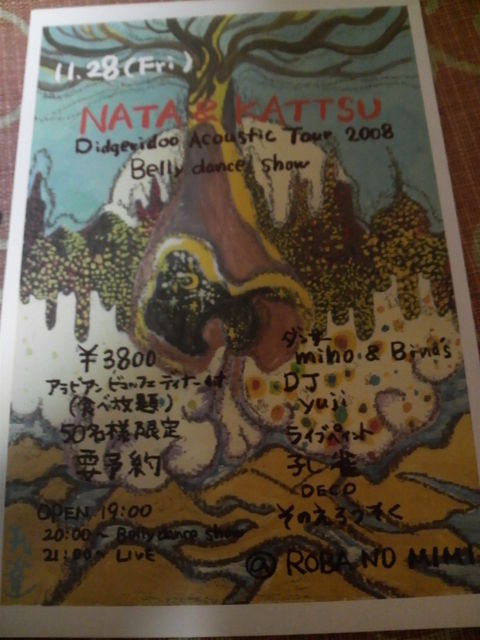 11.28(Fri)
NATA & KATTSU
Didgeridoo Acoustic Tour 2008
Belly dance show
¥3800
アラビアンビュッフェディナー付
(食べ放題)
50名様限定
要予約
OPEN 19:00
20:00~ Belly dance show
21:00~ LIVE
ダンサー
miho & Bina's
DJ
yuji
ライブペイント
孔雀
DECO
そのえろっすく
@ ROBA NO MIMI